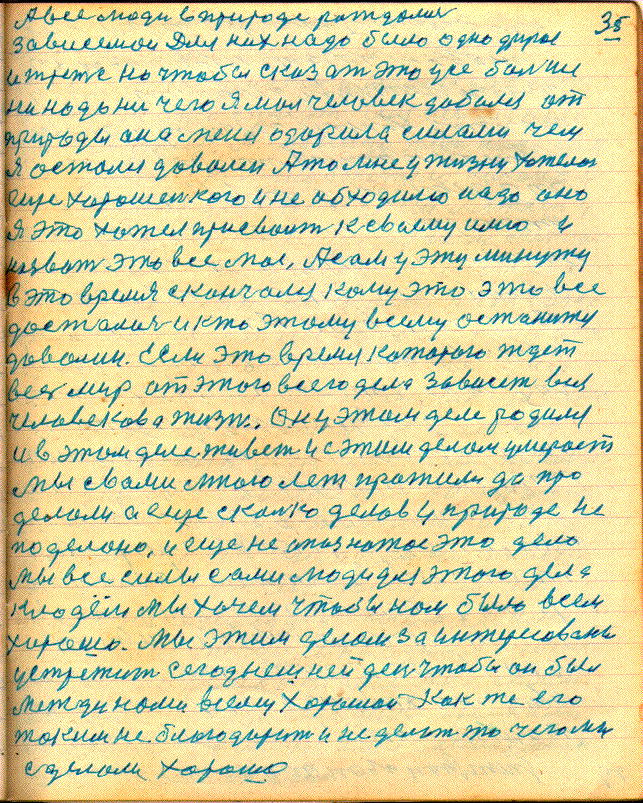 А все люди в природе рождалися
35
зависемои Для них надо было одно другое
и третье но чтобы сказат это уже болше
ни надо ни чего Я мол человек добился от
природы она меня одарила силами чем
я остался доволен А то мне у жизни хотелос
еще хорошенкого и не обходимо надо оно
Я это хотел присвоит к своему имю и
назват это все мое, А сам у эту минуту
в это время скончался кому это это все
досталися и кто этому всему останится
доволин. Если это время которого ждет
весь мир от этого всего дела зависит вся
человекова жизн. Он у этом деле родился
и в этом деле живет и с этим делом умерает
Мы с вами много лет прожили да про
делали а еще сколко делов у природе не
поделано, и еще не опознатое это дело
Мы все силы сами люди для этого дела
кладём мы хочем чтобы нам было всем
хорошо. Мы этим делом заинтересованы
устретит сегоднешней ден чтобы он был
между нами всеми Хорошой Как же его
таким не благодарит и не делат то чего мы
сделали хорошо